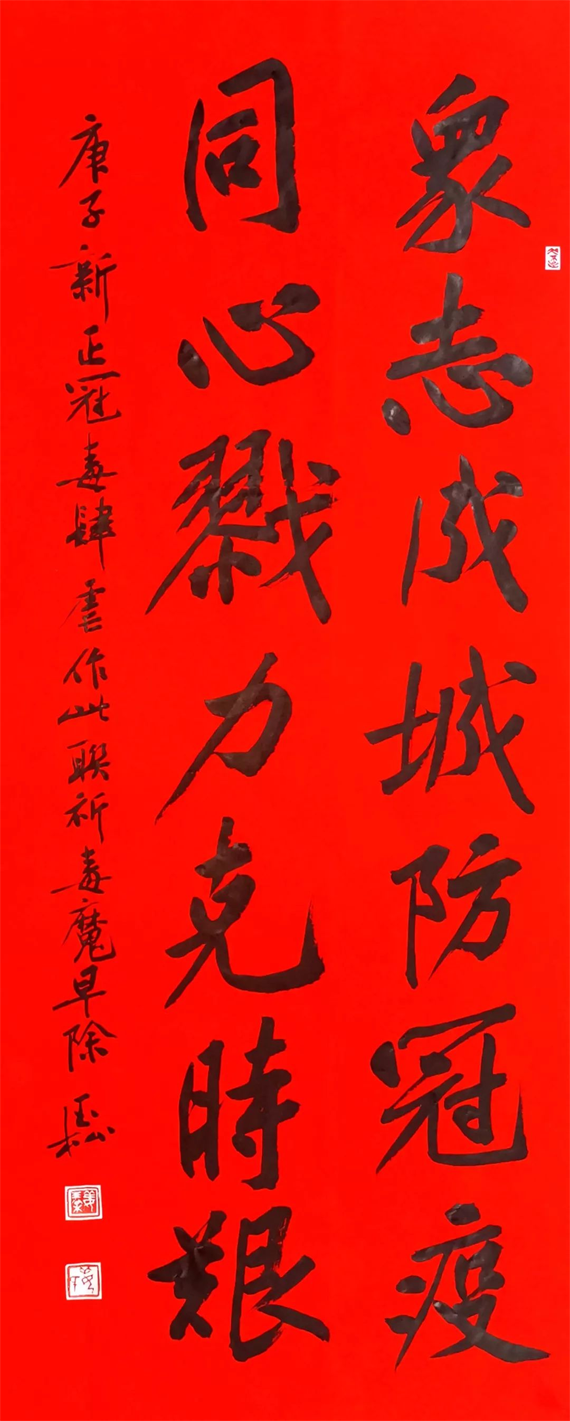 眾志成城防冠疫
同心戮力克時艱
庚子新正冠毒肆雲作此聯祈毒魔早除